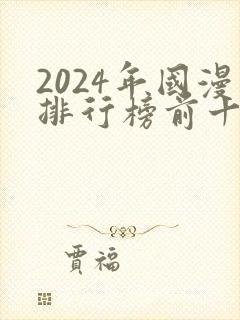 2024年國漫
排行榜前十
賈福